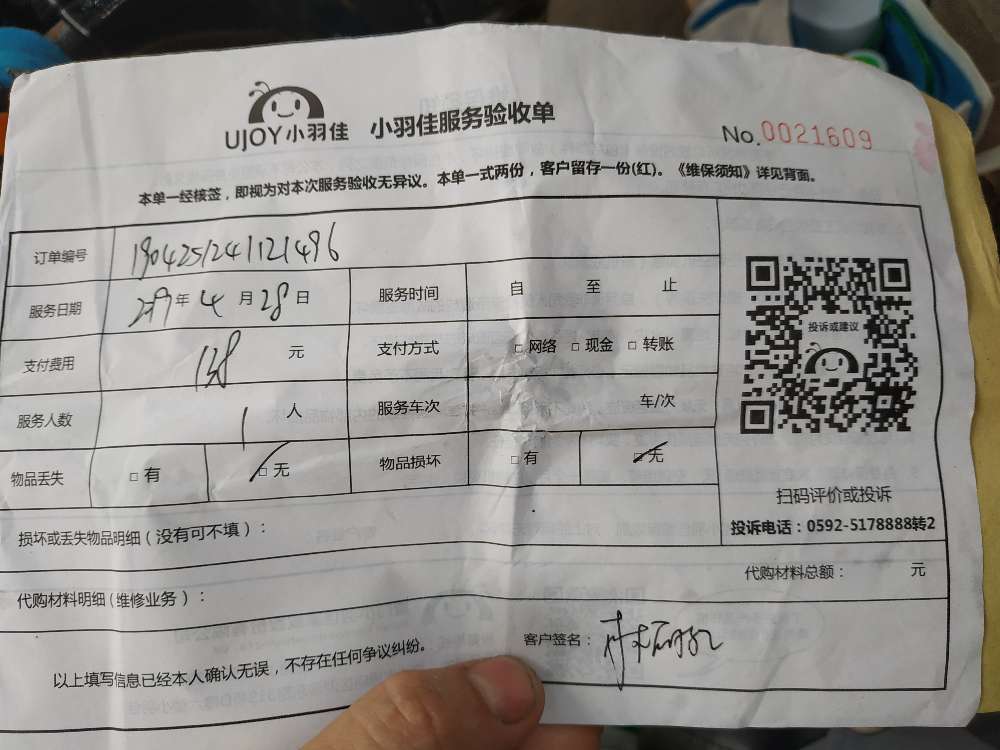 UJOY小羽佳 小羽佳服务验收单
No.0021609
本单一经核签，即视为对本次服务验收无异议。本单一式两份，客户留存一份(红)。《维保须知》详见背面。
订单编号 190425124112149​6
服务日期 2019年4月28日 服务时间 自 至 止
支付费用 138 元 支付方式 □ 网络 □ 现金 □ 转账
服务人数 1 人 服务车次 车/次
物品丢失 □ 有 □ 无 物品损坏 □ 有 □ 无
投诉或建议
扫码评价或投诉
投诉电话：0592-5178888转2
损坏或丢失物品明细（没有可不填）：
代购材料总额： 元
代购材料明细（维修业务）：
客户签名：
以上填写信息已经本人确认无误，不存在任何争议纠纷。